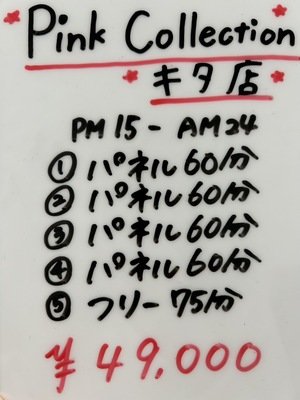 Pink Collection
キタ店
PM 15 - AM 24
① パネル 60分
② パネル 60分
③ パネル 60分
④ パネル 60分
⑤ フリー 75分
¥49,000